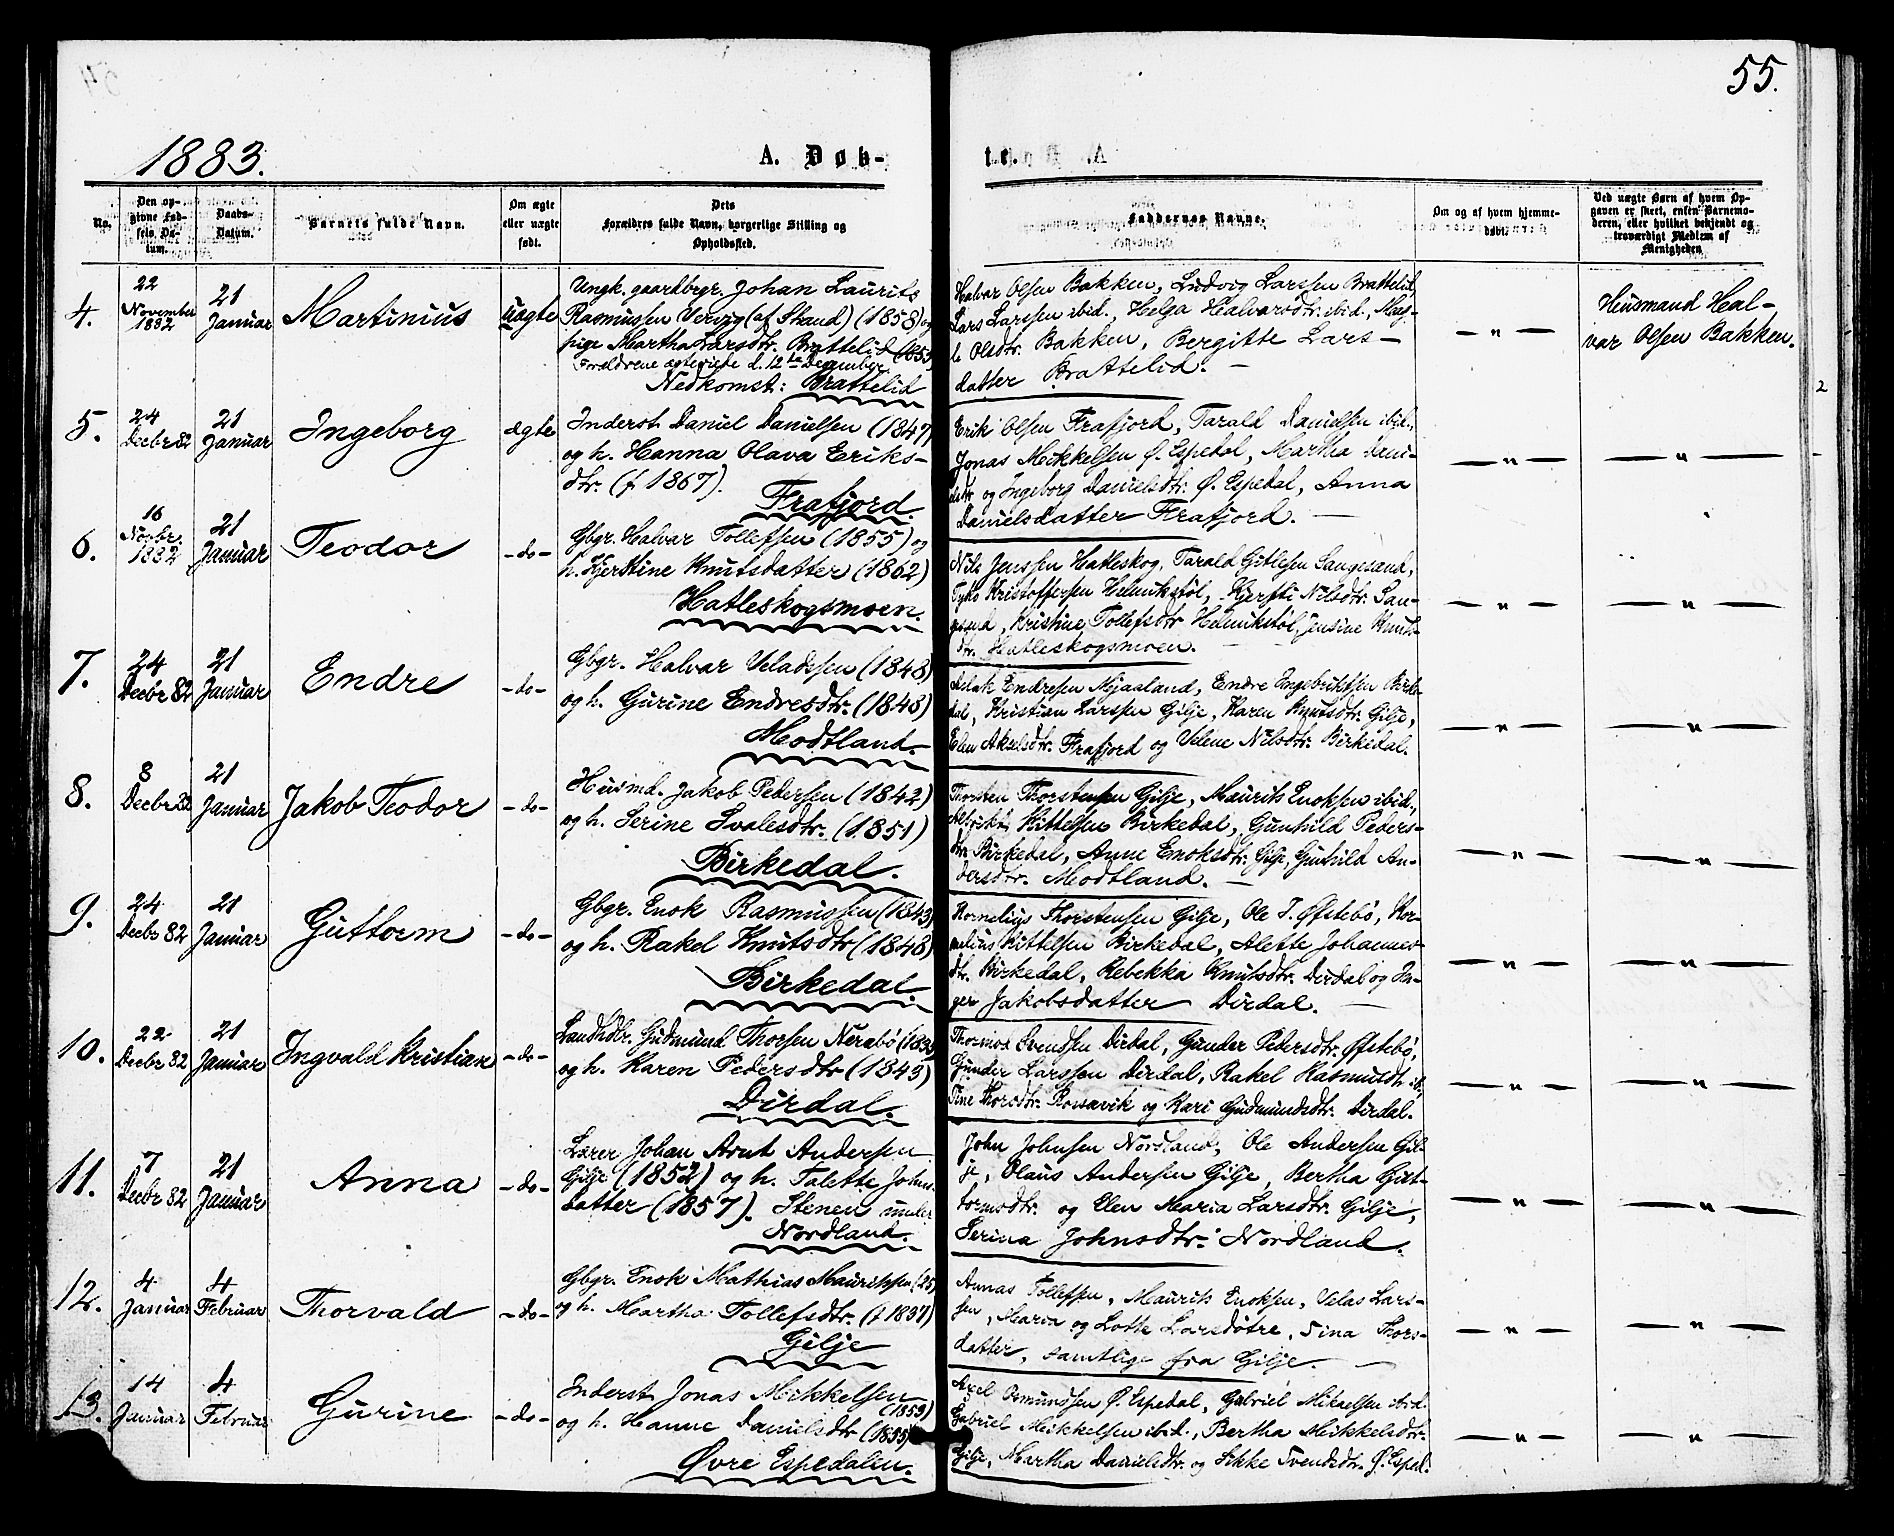 55.
1883.
A. Døb-
te.
No.
Den op-
givne Fød-
sels Da-
tum.
Daabs-
Datum.
Barnets fulde Navn.
Om ægte
eller uægte
født.
Dets
Forældres fulde Navn, borgerlige Stilling og
Opholdssted.
Faddernes Navne.
Om og af hvem hjemme-
døbt.
Ved uægte Børn af hvem Op-
gaven er skeet, enten Barnemo-
deren, eller hvilket bekjendt og
troværdigt Medlem af
Menigheden
4.
22
November
1882
21
Januar
Martinius
uægte
Ungk. gaardbrgr. Johan Laurits
Rasmussen Vervig (af Strand) (1858) og
pige Martha Larsdtr. Brattelid
Forældrene ægteviede d. 12te Decembr.
Nedkomst: Brattelid
Halvar Olsen Bakken, Ludvig Larssen Brattelid
Lars Larssen ibid., Helga Halvarsdtr. ibid.,
Olsdtr. Bakken, Bergitte Lars-
datter Brattelid. —
— " —
Husmand Hal-
var Olsen Bakken.
5.
24
Decbr 82
21
Januar
Ingeborg
ægte
Inderst Daniel Danielsen (1847)
og h. Hanna Olava Eriks-
dtr. (f 1867).
Frafjord
Erik Olsen Frafjord, Tarald Danielsen ibid.,
Jonas Mikkelsen Ø. Espedal, Martha Dani-
elsdtr og Ingeborg Danielsdtr. Ø. Espedal, Anna
Danielsdatter Frafjord. —
— " —
— " —
6.
16
Novbr.
1882
21
Januar
Teodor
- do -
Gbgr. Halvar Tollefsen (1855) og
h. Kjerstine Knutsdatter (1862)
Hatleskogsmoen.
Nils Jenssen Hatleskog, Tarald Gitlesen Sangesand,
Tyko Kristoffersen Helmikstøl, Kjersti Nilsdtr. San-
gesand, Kristine Tollefsdtr Helmikstøl, Jensine Knuts-
dtr. Hatleskogsmoen. —
— " —
— " —
7.
24
Decbr 82
21
Januar
Endre
- do -
Gbgr. Halvar Veladssen (1848)
og h. Gurine Endresdtr. (1848)
Modtland.
Aslak Endresen Njaaland, Endre Ingebriktsen Birke-
dal, Kristian Larssen Gilje, Karen Knutsdtr. Gilje,
Elen Akselsdtr. Frafjord og Velene Nilsdtr. Birkedal.
— " —
— " —
8.
8
Decbr 82
21
Januar
Jakob Teodor
- do -
Husmd. Jakob Pedersen (1842)
og h. Serine Svalesdtr. (1851)
Birkedal.
Thorsten Thorstensen Gilje, Maurits Enoksen ibid.,
Kittelsen Birkedal, Gunhild Peders-
dtr Birkedal, Anne Enoksdtr. Gilje, Gunhild An-
dersdtr. Modtland. —
— " —
— " —
9.
24
Decbr 82
21
Januar
Guttorm
- do -
Gbgr. Enok Rasmussen (1843)
og h. Rakel Knutsdtr (1848)
Birkedal.
Kornelius Thorstensen Gilje, Ole T. Øfstebø, Kor-
nelius Kittelsen Birkedal, Alette Johannes-
dtr. Birkedal, Rebekka Knutsdtr. Dirdal og In-
ger Jakobsdatter Dirdal. —
— " —
— " —
10.
22
Decbr 82
21
Januar
Ingvald Kristian
- do -
Landhdlr. Gudmund Thorsen Nerebø
og h. Karen Pedersdtr (1843)
Dirdal.
Thormod Svendsen Dirdal, Gunder Pedersdtr. Øfstebø,
Gunder Larssen Dirdal, Rakel Rasmusdtr ib.,
Tine Thorsdtr. Rossavik og Kari Gudmundsdtr. Dirdal.
— " —
— " —
11.
7
Decbr 82
21
Januar
Anna
- do -
Lærer Johan Arnt Andersen
Gilje (1852) og h. Talette Johns-
datter (1857). Stenen under
Nordland.
John Johnsen Nordland, Ole Andersen Gil-
je, Olaus Andersen Gilje, Bertha Gut-
tormsdtr. og Elen Maria Larsdtr. Gilje,
Serina Johnsdtr. Nordland.
— " —
— " —
12.
4
Januar
4
Februar
Thorvald
- do -
Gbgr. Enok Mathias Mauritssen (25)
og h. Martha Tollefsdtr. (f 1837)
Gilje
Annas Tollefsen, Maurits Enoksen, Velas Lars-
sen, Maria og Lotte Larsdøtre, Sina Thors-
datter, samtlige fra Gilje. —
— " —
— " —
13.
14
Januar
4
Februar
Gurine
- do -
Inderst Jonas Mikkelsen
(1853)
og h. Hanne Danielsdtr (1855)
Øvre Espedalen.
Axel Osmundssen Ø. Espedal, Gabriel Mikaelsen ibid.
Gabriel Mikkelsen ibid., Bertha Mikkelsdtr.
Gilje, Martha Danielsdtr. og Sikke Svendsdtr. Ø. Esped.
— " —
— " —
2